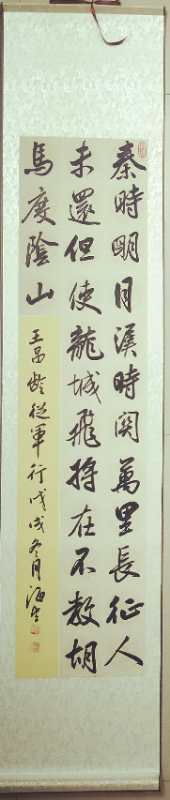 秦時明月漢時関萬里長征人
未還但使龍城飛將在不教胡
馬度陰山
王昌齡從軍行戊戌冬月海生